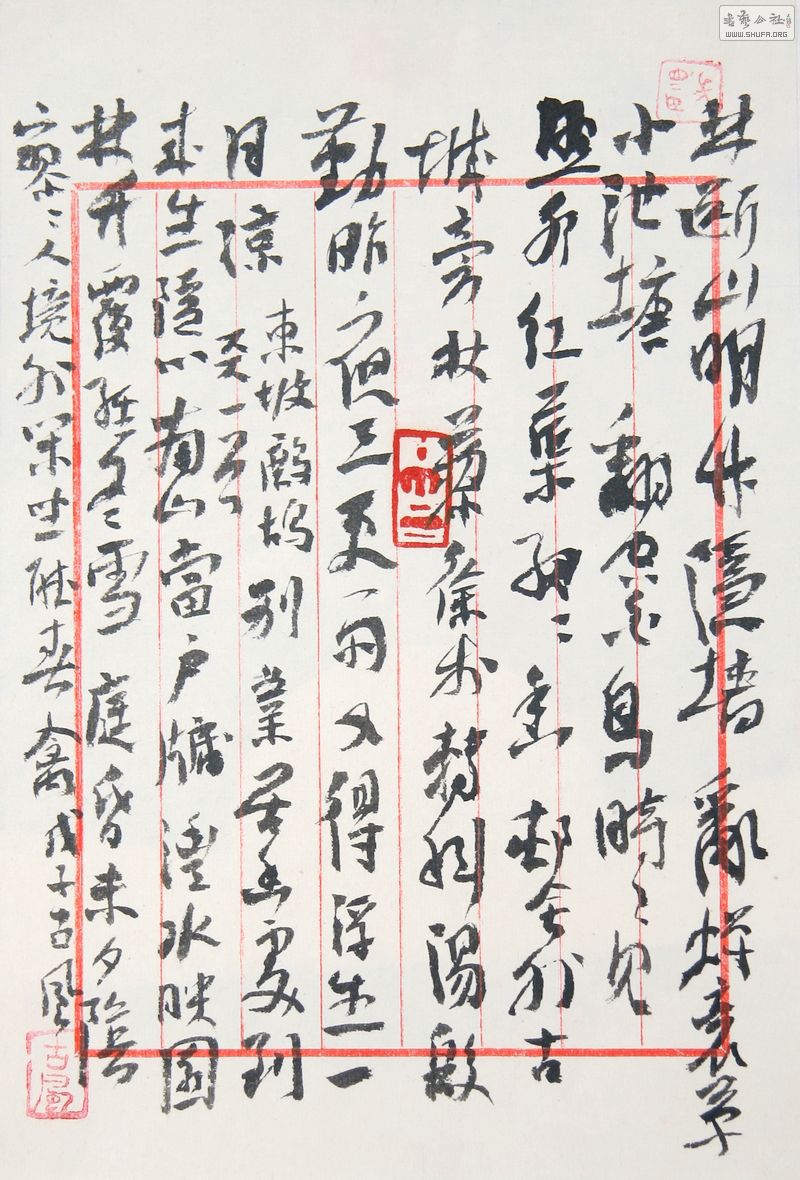 書藝公社
WWW.SHUFA.ORG
林斷山明竹隱墻亂蟬衰草
小池塘翻空白鳥時〻見
照水紅蕖細〻香村舍外古
城旁杖藜徐步轉斜陽殷
勤昨夜三更雨又得浮生一
日涼
東坡鷓鴣
天一首
別業居幽處到
來生隱心南山當戶牖灃水映園
林竹覆經冬雪庭昏未夕陰
寥〻人境外閑坐聽春禽戊子古風
古風